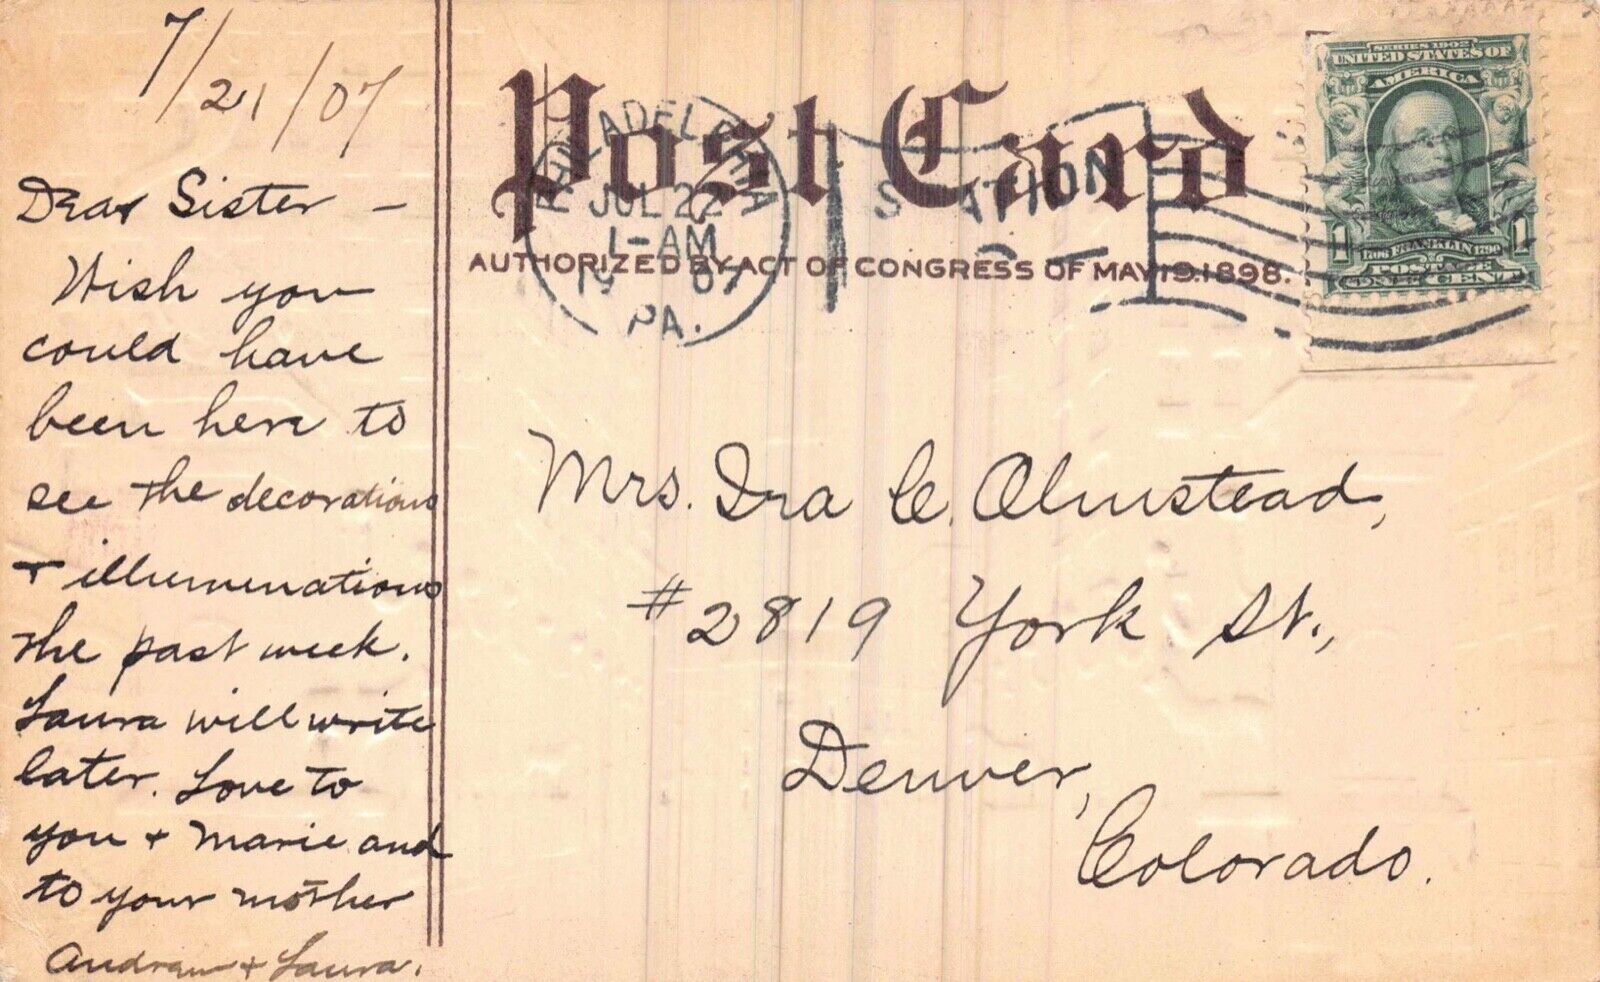 7/21/07
Dear Sister –
Wish you
could have
been here to
see the decorations
+ illuminations
the past week.
Laura will write
later. Love to
you + Marie and
to your mother
Andrew + Laura.
Post Card
AUTHORIZED BY ACT OF CONGRESS OF MAY 19. 1898.
PHILADELPHIA
JUL 22
1-AM
07
PA.
STATION
SERIES 1902
UNITED STATES OF
AMERICA
1 1706 FRANKLIN 1790 1
POSTAGE
ONE CENT
Mrs. Ira C. Olmstead,
#2819 York St.,
Denver,
Colorado.